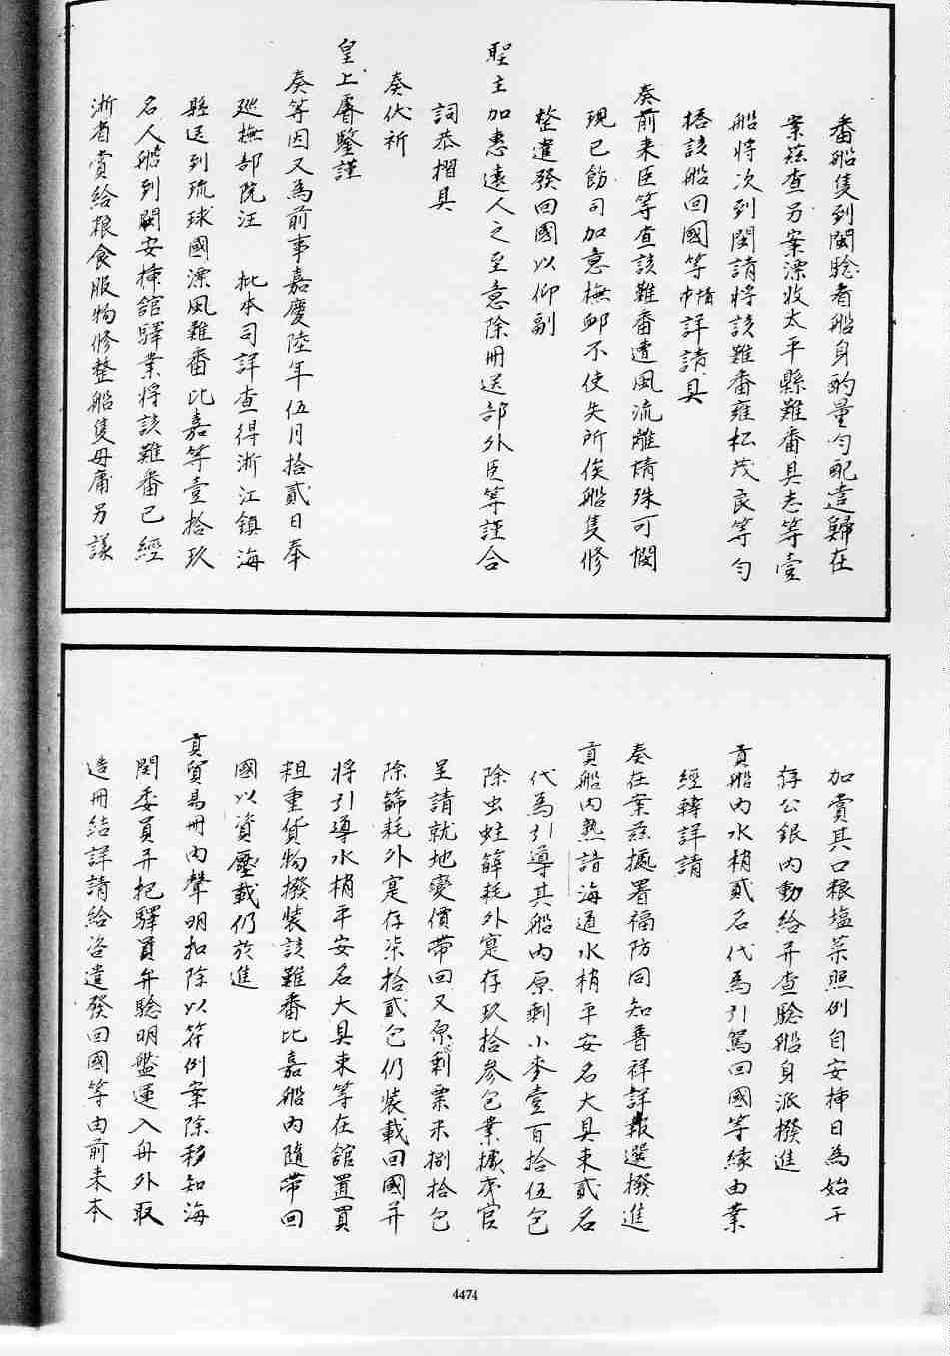 番船隻到閩驗看船身酌量勻配遣歸在
案茲查另案漂收太平縣難番具志等壹
船將次到閩請將該難番雍松茂良等勻
搭該船回國等情詳請具
奏前來臣等查該難番遭風流離情殊可憫
現已飭司加意撫卹不使失所俟船隻修
整遣發回國以仰副
聖主加惠遠人之至意除冊送部外臣等謹合
詞恭摺具
奏伏祈
皇上睿鑒謹
奏等因又為前事嘉慶陸年伍月拾貳日奉
巡撫部院汪 批本司詳查得浙江鎮海
縣送到琉球國漂風難番比嘉等壹拾玖
名人船到閩安揷舘驛業將該難番已經
浙省賞給粮食服物修整船隻毋庸另議
加賞其口粮塩菜照例自安揷日為始于
存公銀內動給并查驗船身派撥進
貢船內水梢貳名代為引駕回國等緣由業
經轉詳請
奏在案茲據署福防同知普祥詳報選撥進
貢船內熟諳海道水梢平安名大具東貳名
代為引導其船內原剩小麥壹百拾伍包
除虫蛀篩耗外寔存玖拾參包業據夷官
呈請就地變價帶回又原剩粟米捌拾包
除篩耗外寔存柒拾貳包仍裝載回國并
將引導水梢平安名大具東等在舘置買
粗重貨物撥裝該難番比嘉船內隨帶回
國以資壓載仍於進
貢貿易冊內聲明扣除以符例案除移知海
関委員并把驛員弁驗明盤運入舟外取
造冊結詳請給咨遣發回國等由前來本
4474